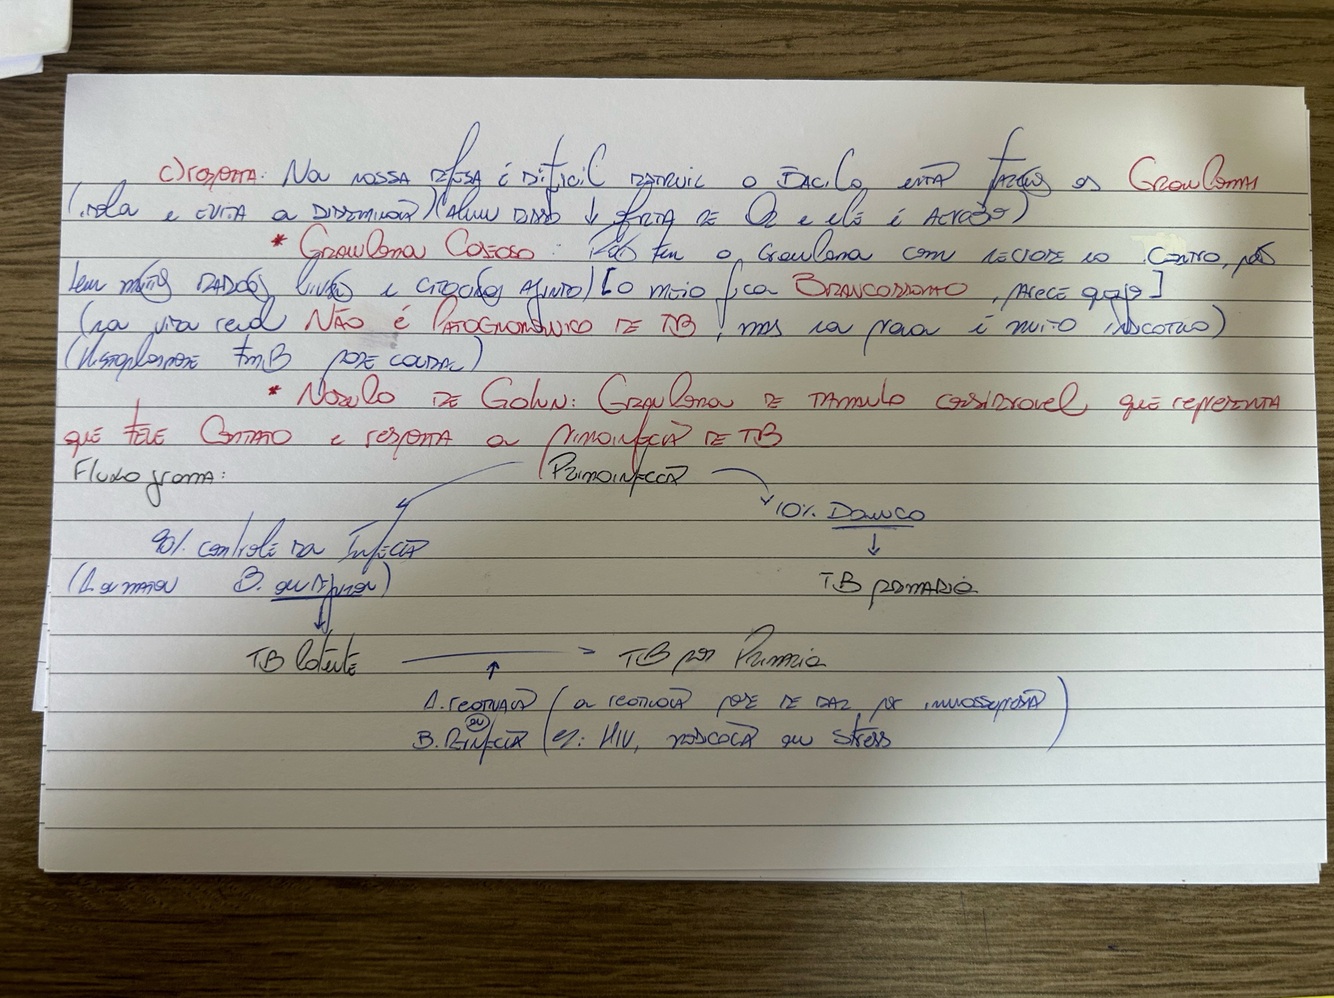 c) resposta: Na nossa defesa é difícil destruir o Bacilo, então fazemos os Granulomas
(isola e evita a disseminação) (Além disso ↓ oferta de O2 e ele é aeróbio)
* Granuloma Caseoso: Pois tem o Granuloma com necrose no Centro, pois
tem muitos radicais livres e citocinas [o meio fica Brancossento, parece queijo]
(na vida real NÃO é Patognomônico de TB, mas na prova é muito indicativo)
(Histoplasmose tmB pode causar)
* Nódulo de Gohn: Granuloma de tamanho considerável que representa
que teve Contato e resposta a primoinfecção de TB
Fluxograma: Primoinfecção
10% Doença
90% controle da Infecção
(A. ou matou B. ou) TB primária
TB latente → TB pós Primária
A. reativação (a reativação pode se dar por imunossupressão
ou
B. Reinfecção ex: HIV, ou Stress)